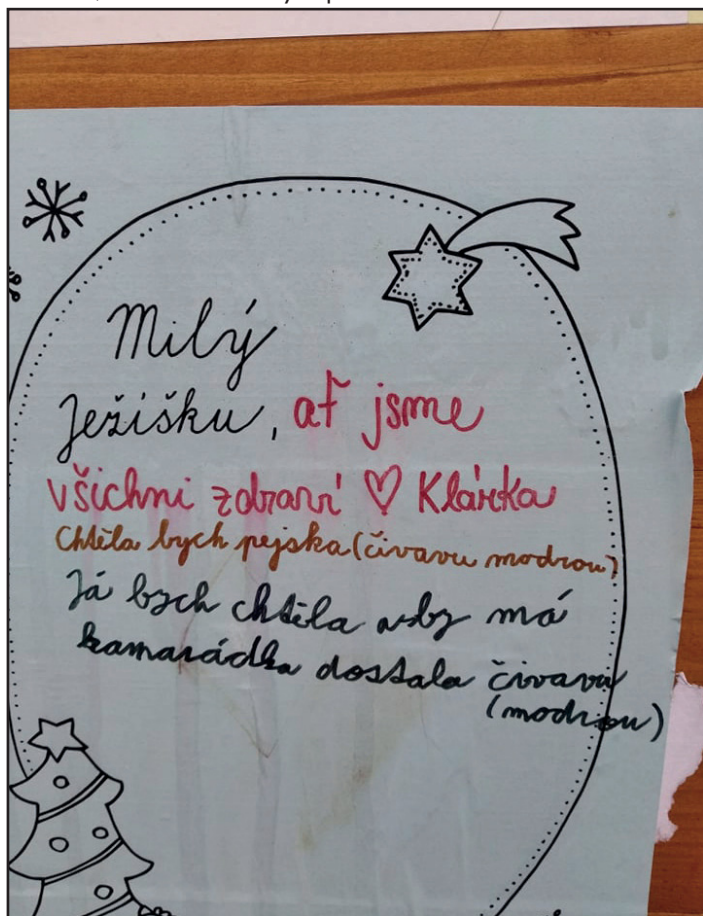 Milý
Ježíšku, ať jsme
všichni zdraví ♡ Klárka
Chtěla bych pejska (čivavu modrou)
Já bych chtěla aby má
kamarádka dostala čivavu
(modrou)